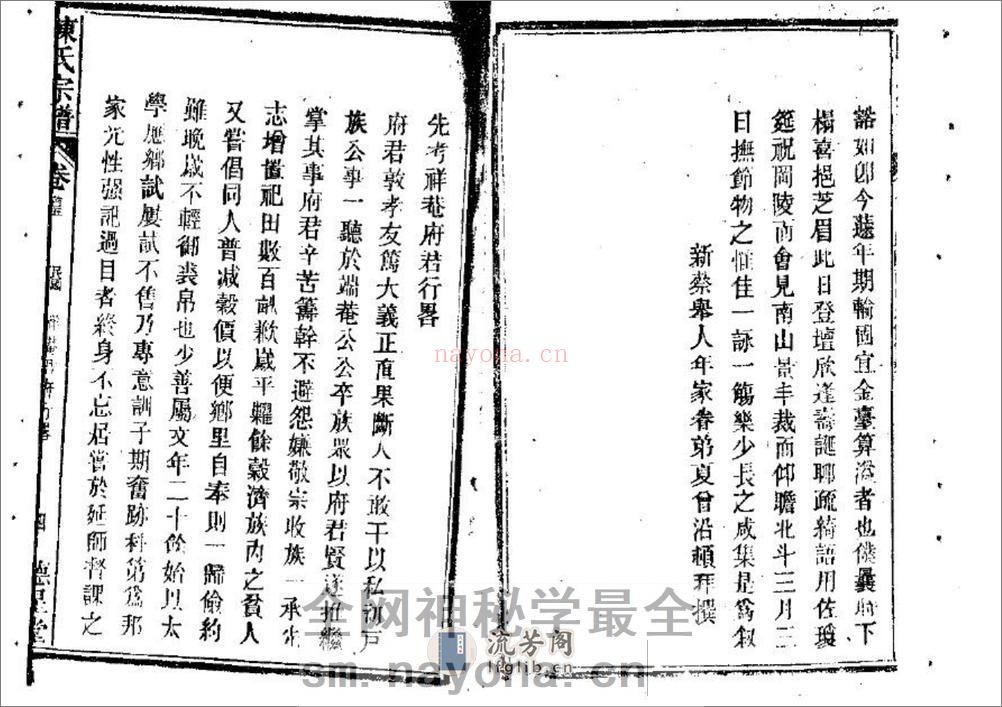 豁如卽今遐年期輸國宜金臺算溢者也僕曩時下
榻喜挹芝眉此日登壇欣逢壽誕聊疏綺語用佐瓊
筵祝岡陵而會見南山景丰裁而仰瞻北斗三月三
日撫節物之惟佳一詠一觴樂少長之咸集是爲叙
新蔡舉人年家眷弟夏曾沿頓拜撰
先考祥菴府君行畧
府君敦孝友篤大義正直果斷人不敢干以私初戸
族公事一聽於端菴公公卒族眾以府君賢遂推繼
掌其事府君辛苦籌幹不避怨嫌敬宗收族一承先
志增置祀田數百畝歉歲平糶餘穀濟族內之貧人
又嘗倡同人普減穀價以便鄉里自奉則一歸儉約
雖晚歲不輕御裘帛也少善屬文年二十餘始以太
學應鄉試屢試不售乃專意訓子期奮跡科第爲邦
家光性强記過目者終身不忘居嘗於延師督課之
陳氏宗譜
卷
四
德星堂
nayona.cn
全网神秘学最全
流芳阁
lfglib.cn
sm.nayona.cn